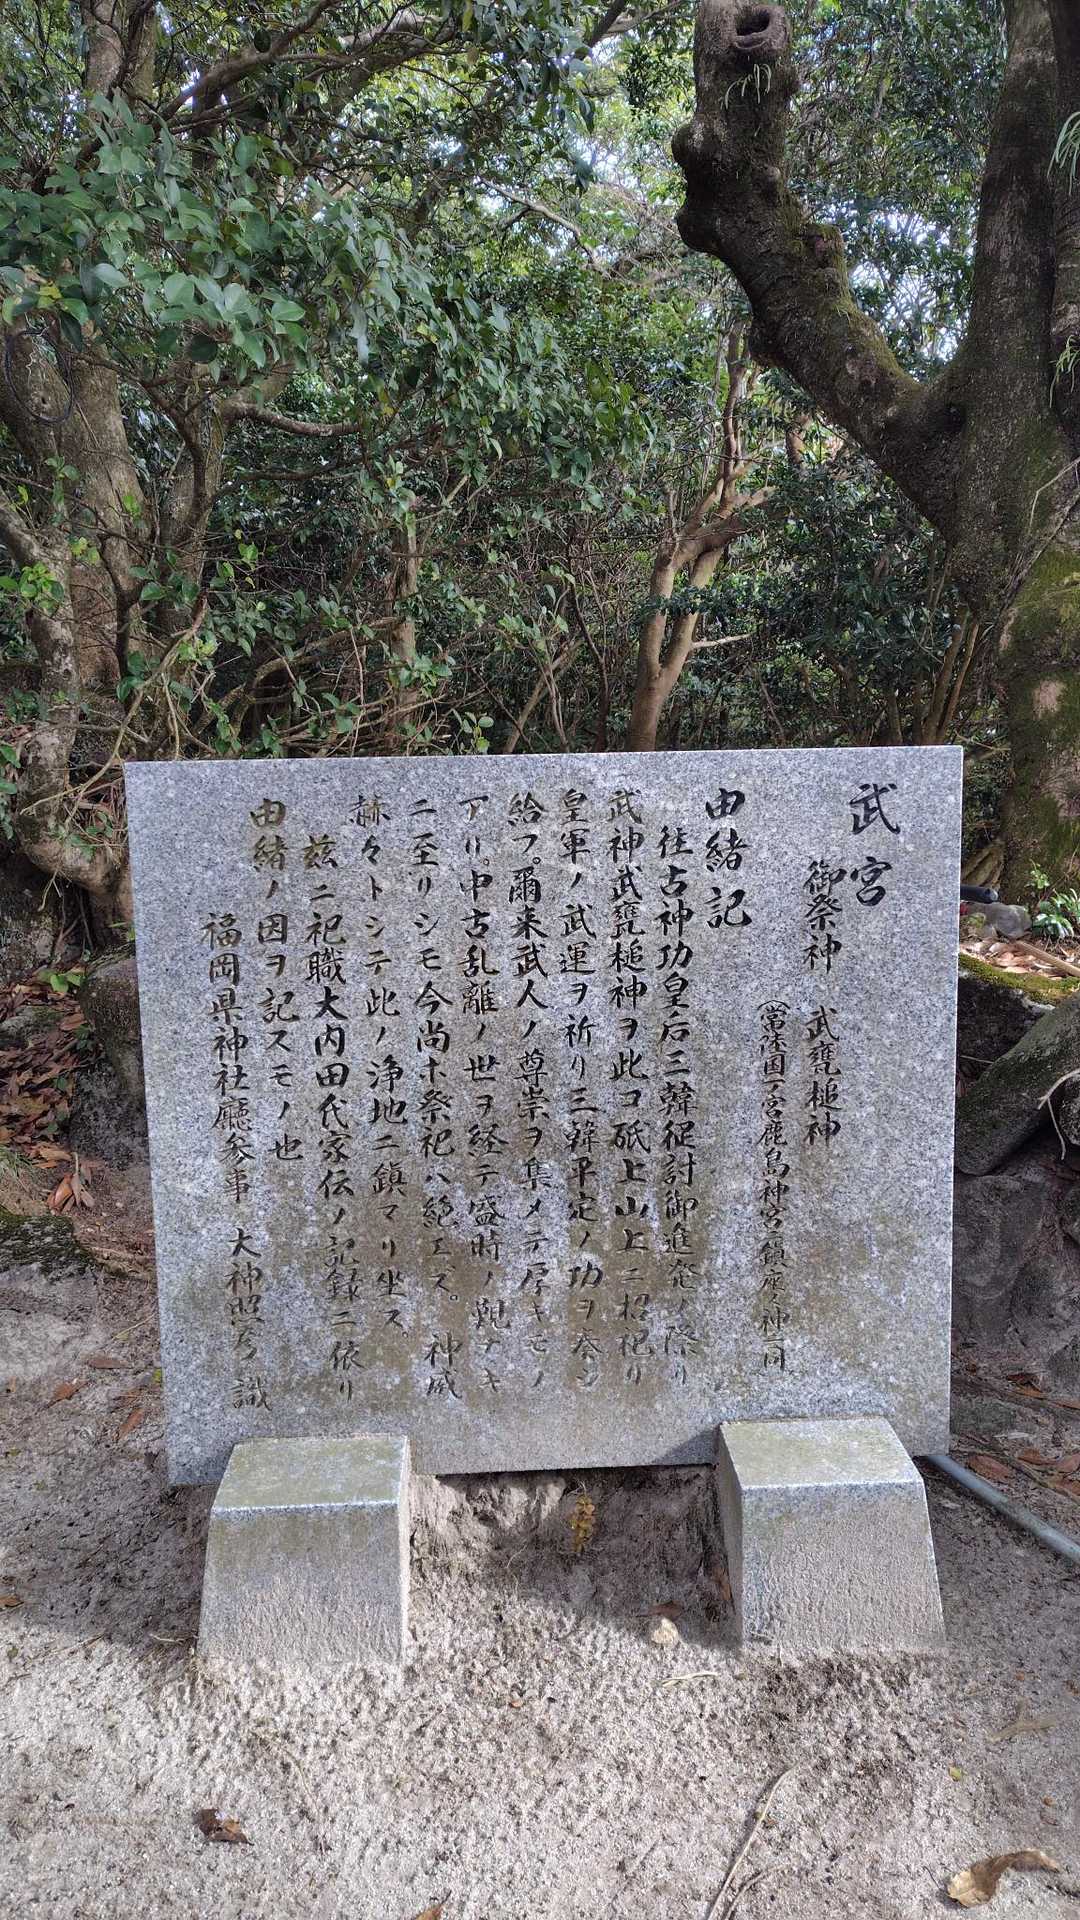 武宮
御祭神 武甕槌神
(常陸国一ノ宮鹿島神宮鎮座ノ神ニ同
由緒記
往古神功皇后三韓征討御進発ノ際リ
武神武甕槌神ヲ此コ砥上山上ニ招祀リ
皇軍ノ武運ヲ祈リ三韓平定ノ功ヲ奏シ
給フ。爾来武人ノ尊崇ヲ集メテ厚キモノ
アリ。中古乱離ノ世ヲ経テ盛時ノ観ナキ
ニ至リシモ今尚ホ祭祀ハ絶エズ。神威
赫々トシテ此ノ浄地ニ鎮マリ坐ス。
茲ニ祀職大内田代家伝ノ記録ニ依リ
由緒ノ因ヲ記スモノ也
福岡県神社廳参事 大神照彦 識